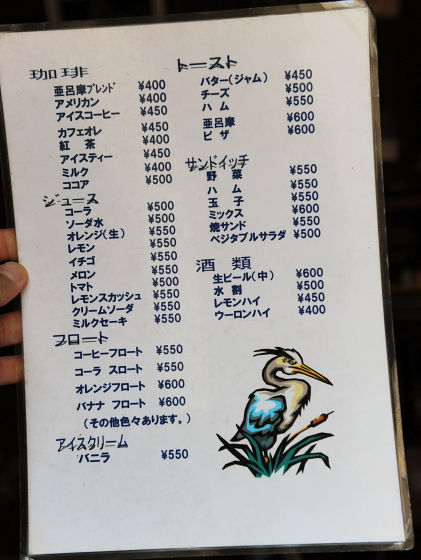 珈琲
亜呂摩ブレンド ¥400
アメリカン ¥400
アイスコーヒー ¥450
カフェオレ ¥450
紅 茶 ¥400
アイスティー ¥450
ミルク ¥400
ココア ¥500
ジュース
コーラ ¥500
ソーダ水 ¥500
オレンジ(生) ¥550
レモン ¥550
イチゴ ¥550
メロン ¥550
トマト ¥500
レモンスカッシュ ¥550
クリームソーダ ¥550
ミルクセーキ ¥550
フロート
コーヒーフロート ¥550
コーラ スロート ¥550
オレンジフロート ¥600
バナナ フロート ¥600
(その他色々あります。)
アイスクリーム
バニラ ¥550
トースト
バター(ジャム) ¥450
チーズ ¥500
ハ ム ¥550
亜呂摩 ¥600
ピ ザ ¥600
サンドイッチ
野 菜 ¥550
ハ ム ¥550
玉 子 ¥550
ミックス ¥600
焼サンド ¥550
ベジタブルサラダ ¥500
酒 類
生ビール(中) ¥600
水 割 ¥500
レモンハイ ¥450
ウーロンハイ ¥400